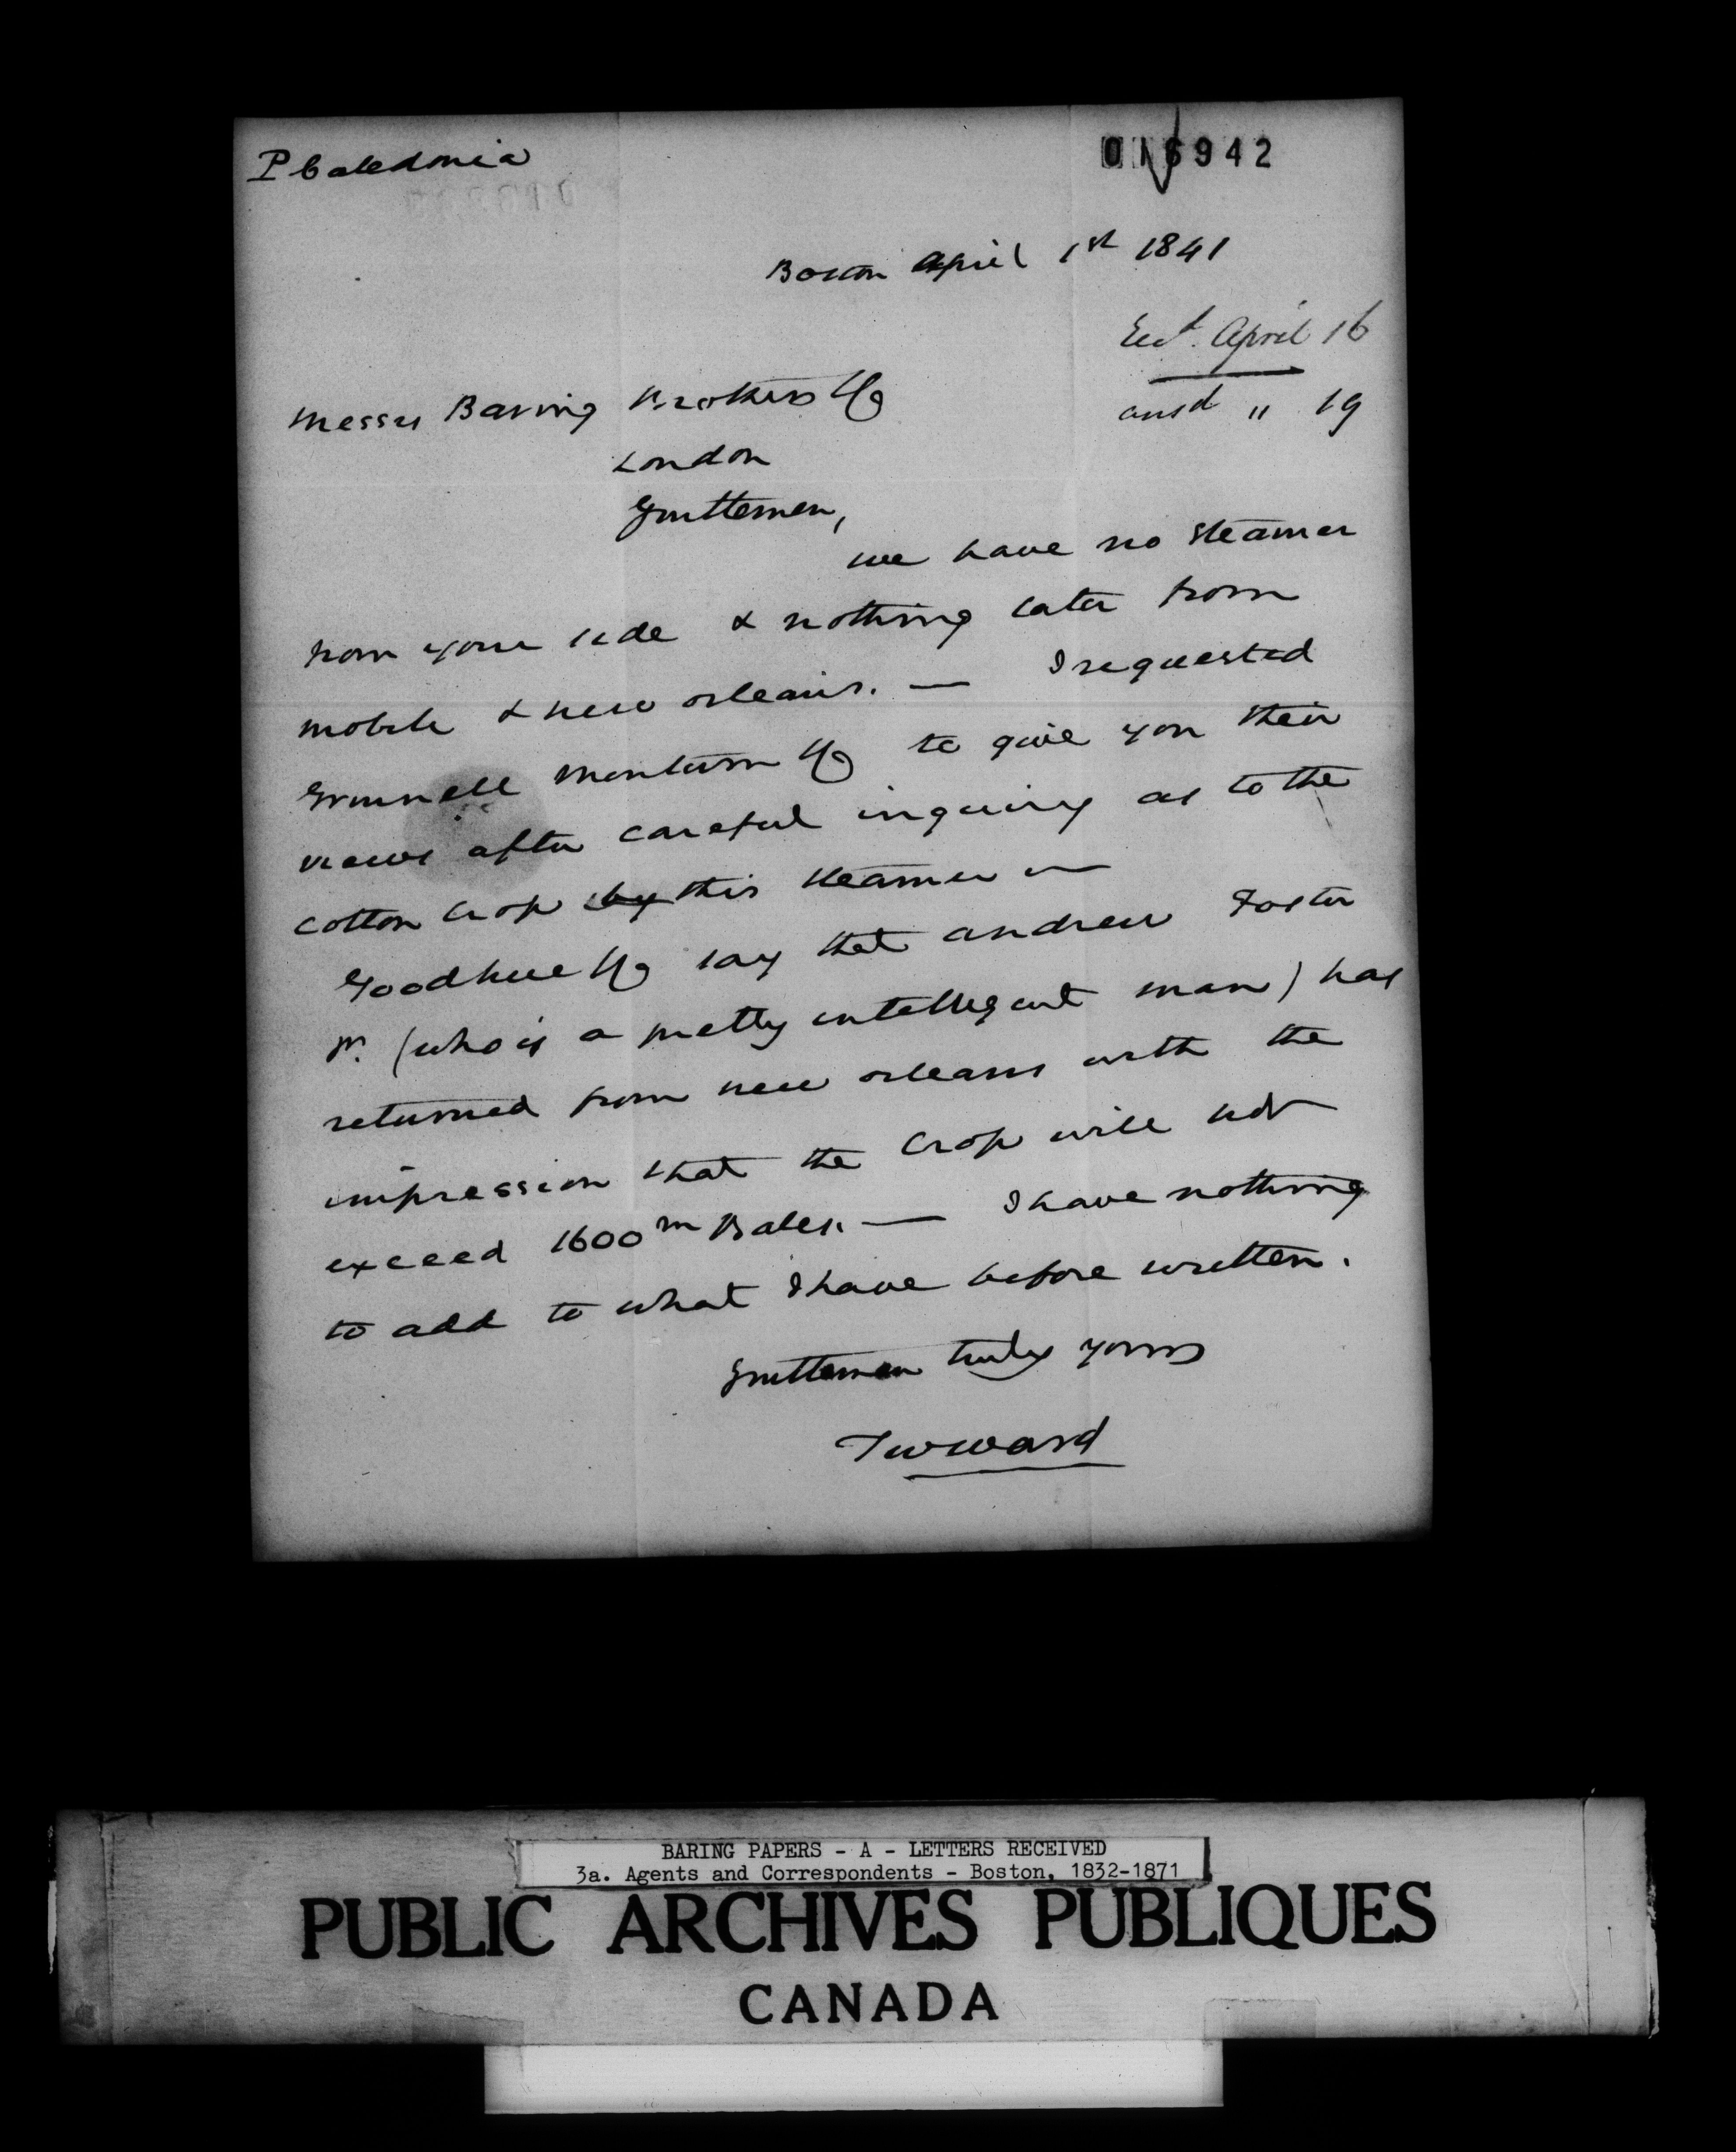 P Caledonia
016942
Boston April 1st 1841
Recd. April 16
ansd " 19
Messrs Baring Brothers & Co
London
Gentlemen,
we have no steamer
from your side & nothing later from
mobile & new orleans. — I requested
Grinnell Minturn & Co to give you their
views after careful inquiry as to the
cotton crop by this steamer —
Goodhue & Co say that andrew Foster
Jr. (who is a pretty intelligent man) has
returned from new orleans with the
impression that the crop will not
exceed 1600m Bales. — I have nothing
to add to what I have before written.
Gentlemen truly yours
TWWard
BARING PAPERS - A - LETTERS RECEIVED
3a. Agents and Correspondents - Boston, 1832-1871
PUBLIC ARCHIVES PUBLIQUES
CANADA